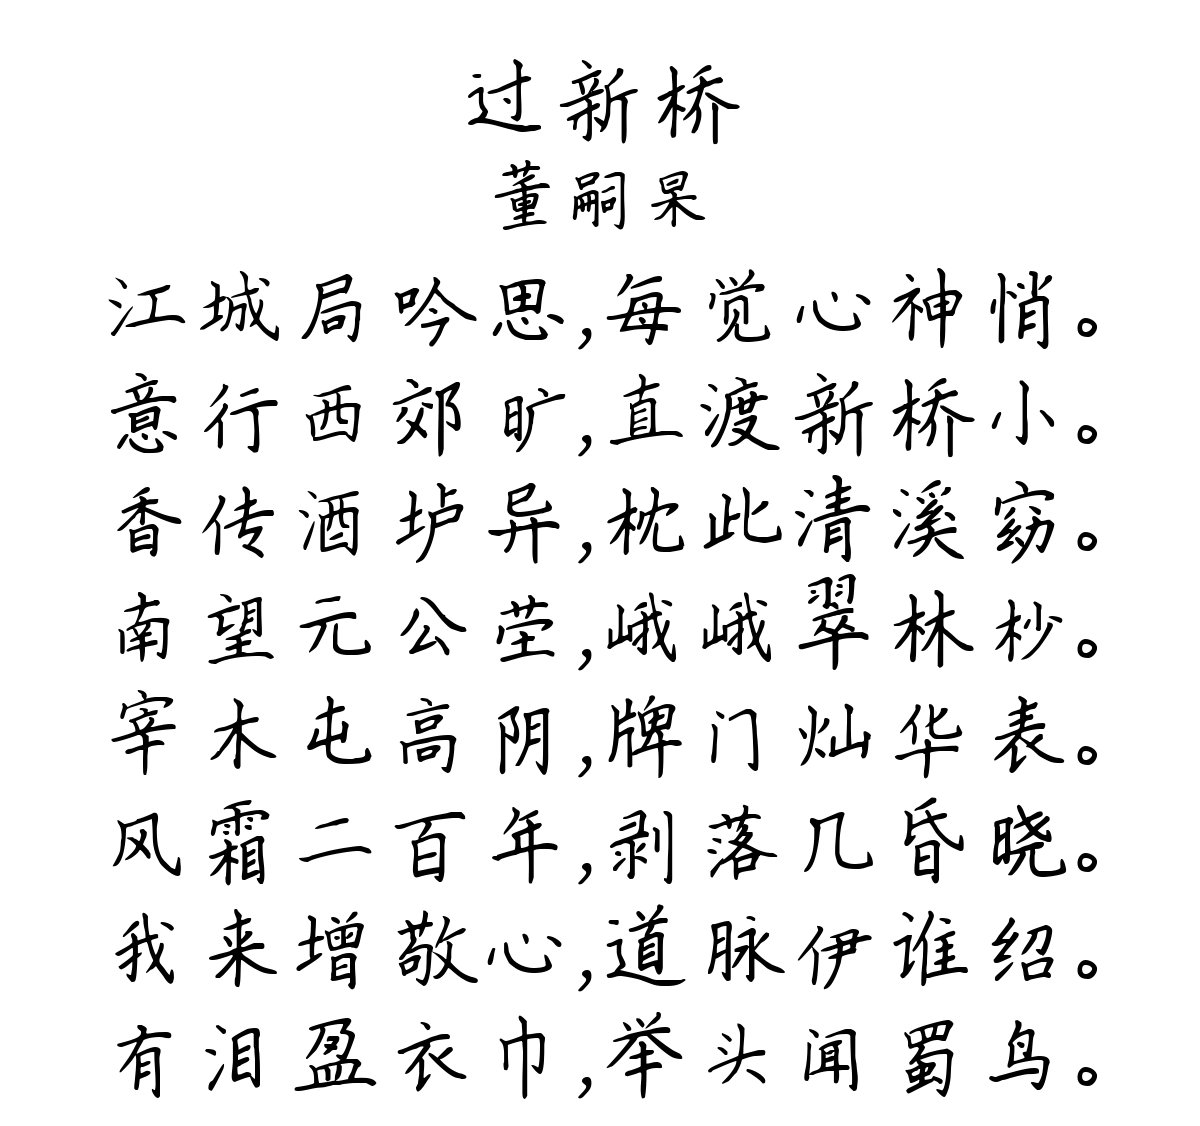 过新桥
董嗣杲
江城局吟思,每觉心神悄。
意行西郊旷,直渡新桥小。
香传酒垆异,枕此清溪窈。
南望元公茔,峨峨翠林杪。
宰木屯高阴,牌门灿华表。
风霜二百年,剥落几昏晓。
我来增敬心,道脉伊谁绍。
有泪盈衣巾,举头闻蜀鸟。